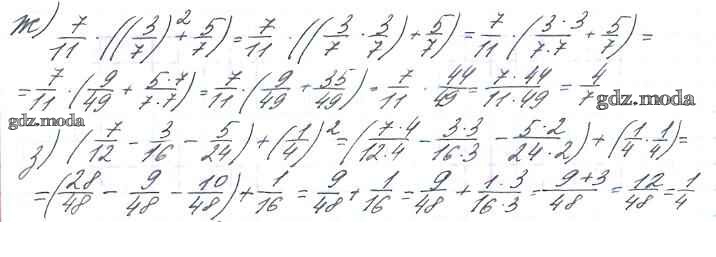 ж) 7/11 · ((3/7)² + 5/7) = 7/11 · ((3/7 · 3/7) + 5/7) = 7/11 · (3·3/7·7 + 5/7) =
= 7/11 · (9/49 + 5·7/7·7) = 7/11 · (9/49 + 35/49) = 7/11 · 44/49 = 7·44/11·49 = 4/7
gdz.moda
gdz.moda
з) (7/12 - 3/16 - 5/24) + (1/4)² = (7·4/12·4 - 3·3/16·3 - 5·2/24·2) + (1/4 · 1/4) =
= (28/48 - 9/48 - 10/48) + 1/16 = 9/48 + 1/16 = 9/48 + 1·3/16·3 = 9+3/48 = 12/48 = 1/4